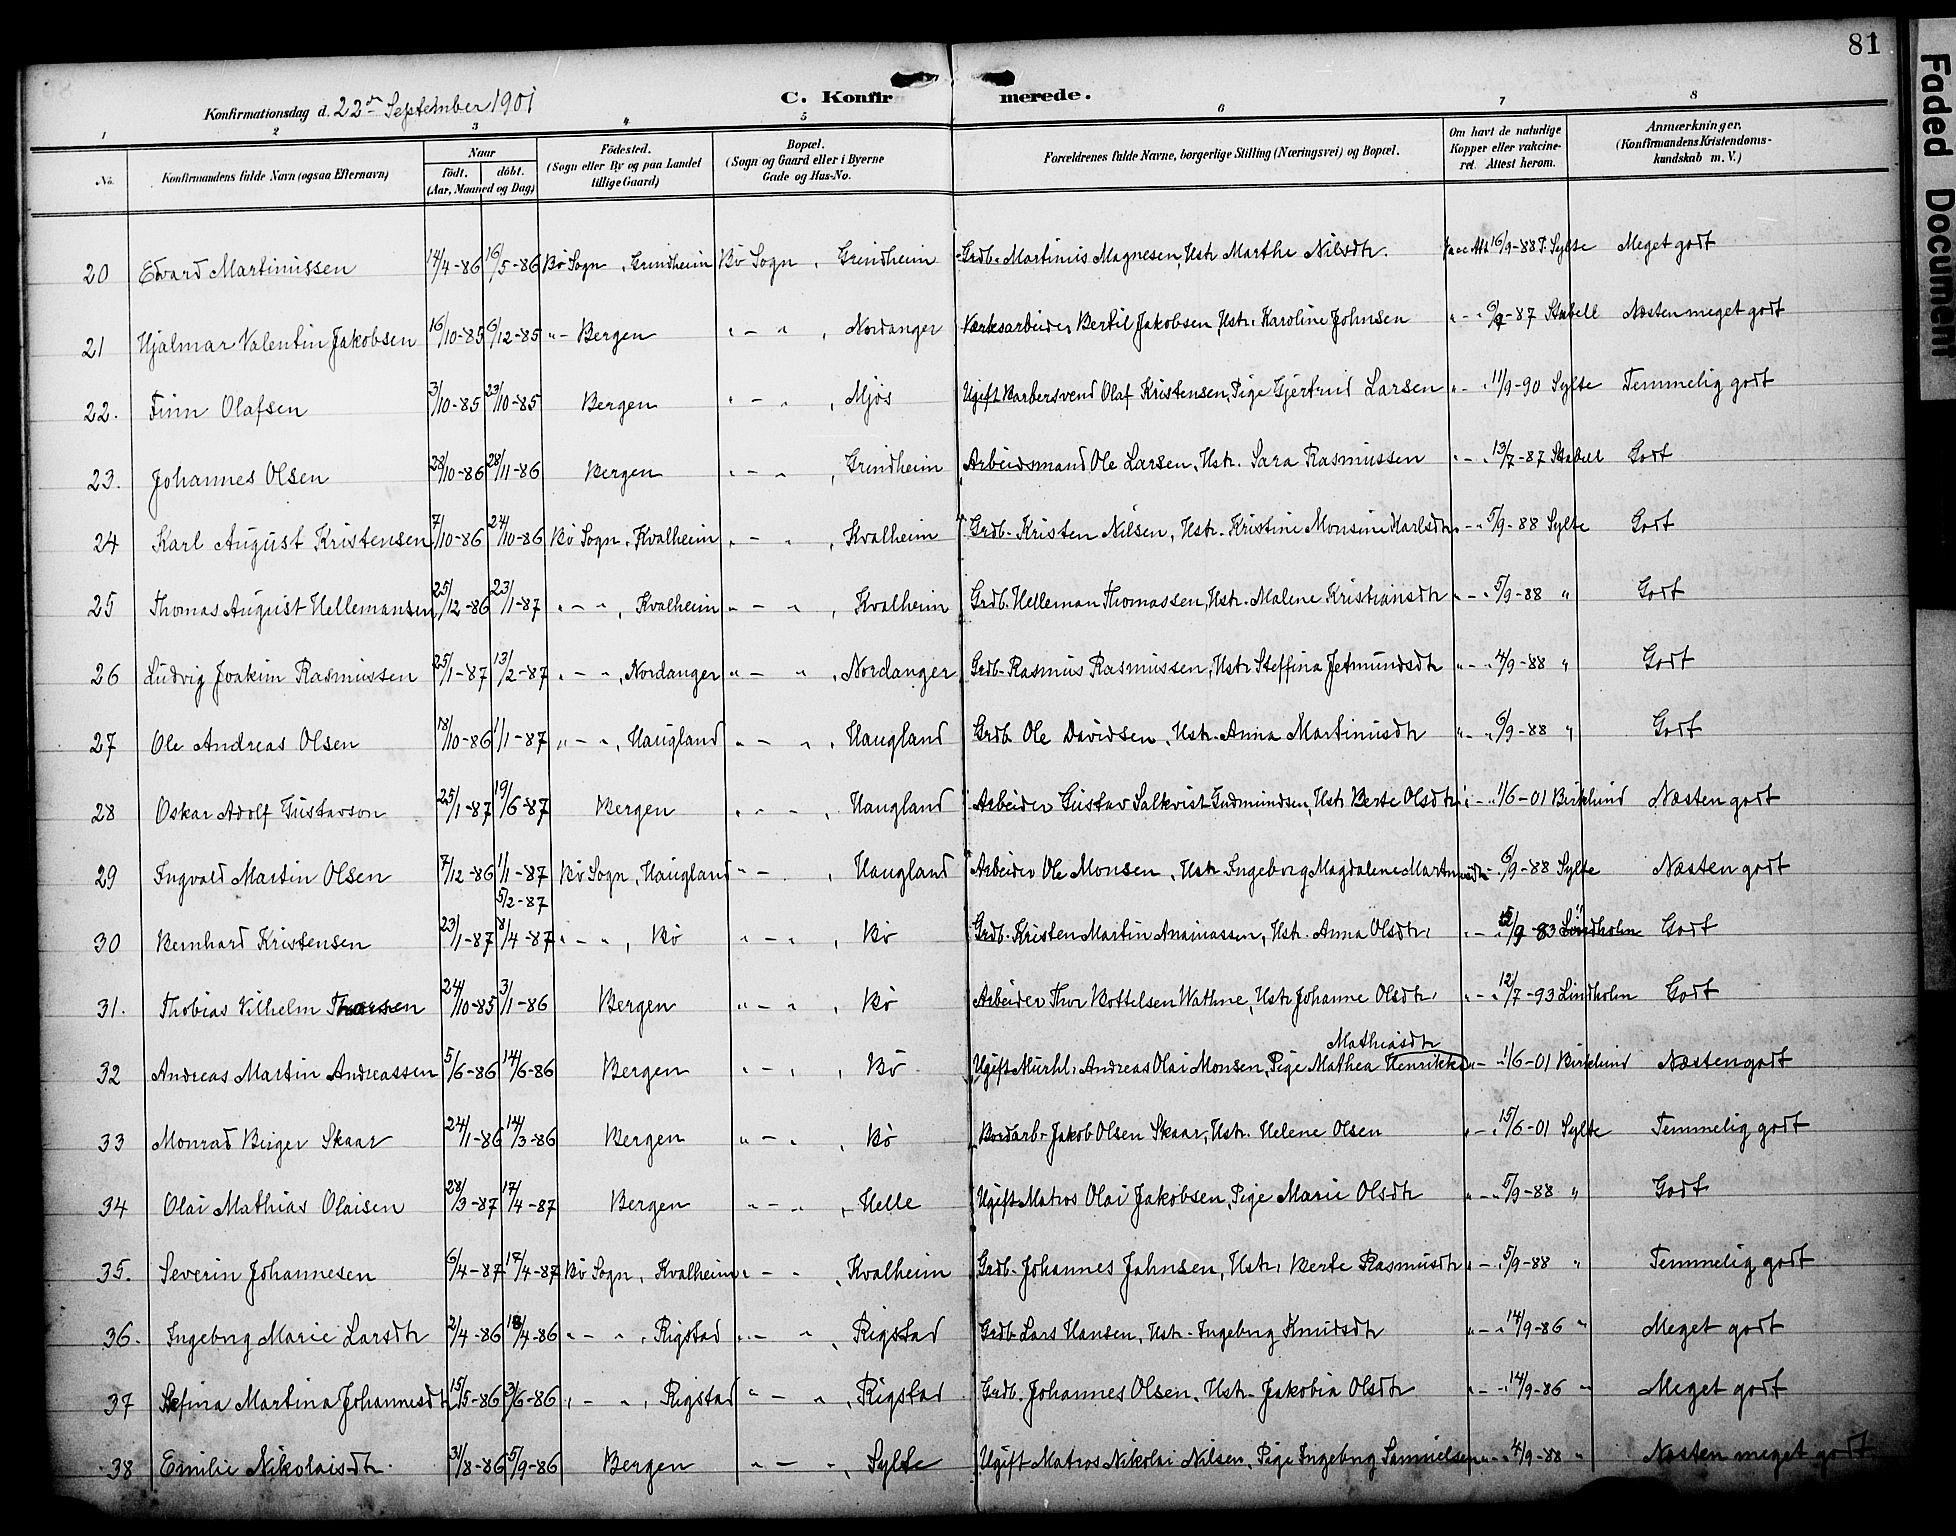 81
Faded Document
Konfirmationsdag d. 22de September 1901
C. Konfirmerede.
1 2 3 4 5 6 7 8
No. Konfirmandens fulde Navn (ogsaa Efternavn) Naar født. døbt. (Aar, Maaned og Dag) Fødested. (Sogn eller By og paa Landet tillige Gaard) Bopæl. (Sogn og Gaard eller i Byerne Gade og Hus-No. Forældrenes fulde Navne, borgerlige Stilling (Næringsvei) og Bopæl. Om havt de naturlige Kopper eller vakcineret. Attest herom. Anmærkninger. (Konfirmandens Kristendomskundskab m. V.)
20 Edvard Martinussen 14/4-86 16/5-86 Bö Sogn, Grindheim Bö Sogn, Grindheim Grdb. Martinus Magnesen, Hstr Marthe Nilsdtr. Att 16/9-88 Sylte Meget godt
21 Hjalmar Valentin Jakobsen 16/10-85 6/12-85 "- Bergen " - " , Nordanger Værksarbeider Bertil Jakobsen, Hstr. Karoline Johnsen " - " 6/9-87 Stabell Næsten meget godt
22. Finn Olafsen 3/10-85 23/10-85 Bergen " - " , Mjös Ugift Barbersvend Olaf Kristensen, Pige Gjertrud Larsen " - " 11/9-90 Sylte Temmelig godt
23. Johannes Olsen 23/10-86 28/11-86 Bergen " - " , Grindheim Arbeidsmand Ole Larsen, Hstr. Sara Rasmussen " - " 13/7-87 Stabell Godt
24 Karl August Kristensen 7/10-86 24/10-86 Bö Sogn, Kvalheim " - " , Kvalheim Grdb. Kristen Nilsen, Hstr. Kristine Monsine Karlsdtr " - " 5/9-88 Sylte Godt
25 Thomas August Hellemansen 25/12-86 23/1-87 " - " , Kvalheim " - " , Kvalheim Grdb. Helleman Thomassen, Hstr. Malene Kristiansdtr " - " 5/9-88 " Godt
26 Ludvig Joakim Rasmussen 25/1-87 13/2-87 " - " , Nordanger " - " , Nordanger Grdb. Rasmus Rasmussen, Hstr Steffina Jetmundsdtr " - " 4/9-88 " Godt
27 Ole Andreas Olsen 18/10-86 1/1-87 " - " , Haugland " - " , Haugland Grdb. Ole Davidsen, Hstr. Anna Martinusdtr " - " 6/9-88 " Godt
28 Oskar Adolf Gustavson 25/1-87 19/6-87 Bergen " - " , Haugland Arbeider Gustav Salkvist Gudmundsen, Hstr Berte Olsdtr " - " 1/6-01 Birkelund Næsten godt
29 Ingvald Martin Olsen 7/12-86 1/1-87 Bö Sogn, Haugland " - " , Haugland Arbeider Ole Monsen, Hstr Ingeborg Magdalene " - 6/9-88 Sylte Næsten godt
5/2-87
30 Bernhard Kristensen 23/1-87 8/4-87 " - " , Bö " - " , Bö Grdb. Kristen Martin Ananiassen, Hstr. Anna Olsdtr, " - " Lindholm Godt
31. Thobias Vilhelm Thorsen 24/10-85 3/1-86 Bergen " - " , Bö Arbeider Thor Bottelsen Wathne, Hstr Johanne Olsdtr, " - " 12/7-93 Lindholm Godt
Mathiasdtr
32 Andreas Martin Andreassen 5/6-86 14/6-86 Bergen " - " , Bö Ugift Murhl. Andreas Olai Monsen, Pige Mathea Henrikke " - " 1/6-01 Birkelund Næsten godt
33 Monrad Birger Skaar 24/1-86 14/3-86 Bergen " - " , Bö Bordarb. Jakob Olsen Skaar, Hstr. Helene Olsen " - " 15/6-01 Sylte Temmelig godt
34 Olai Mathias Olaisen 28/3-87 17/4-87 Bergen " - " , Helle Ugift Matros Olai Jakobsen, Pige Marie Olsdtr " - " 5/9-88 " Godt
35. Severin Johannesen 6/4-87 17/4-87 Bö Sogn, Kvalheim " - " , Kvalheim Grdb. Johannes Jahnsen, Hstr. Berte Rasmusdtr " - " 5/9-88 " Temmelig godt
36. Ingeborg Marie Larsdtr 2/4-86 18/4-86 " - " , Rigstad " - " , Rigstad Grdb. Lars Hansen, Hstr. Ingeborg Knudsdtr " - " 14/9-86 " Meget godt
37 Stefina Martina Johannesdtr 15/5-86 3/6-86 " - " , Rigstad " - " , Rigstad Grdb. Johannes Olsen, Hstr. Jakobia Olsdtr " - " 14/9-86 " Meget godt
38 Emilie Nikolaisdtr. 31/8-86 5/9-86 Bergen " - " , Sylte Ugift Matros Nikolai Nilsen, Pige Ingeborg Samuelsen " - " 4/9-88 " Næsten meget godt